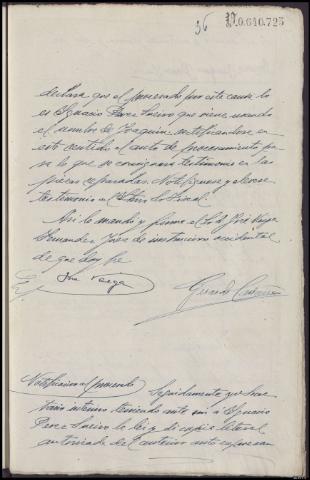 36
0.640.725
declara que el procesado por esta causa lo
es Ignacio Perez Sueiro que viene usando
el nombre de Joaquin. notificandose en
este sentido el auto de procesamiento pa-
ra lo que se consignará testimonio en las
piezas separadas. Notifiquese y elevese
testimonio al Iltmo Sr Fiscal.
Asi lo mando y firma el Sr D José Veiga
Fernandez Juez de instruccion accidental
de que doy fe
José Veiga
Gerardo
Notificacion al procesado
Seguidamente yo Secre
tario interino teniendo ante mi á Ignacio
Perez Sueiro le lei y di copia literal
autorizada del anterior auto expresan